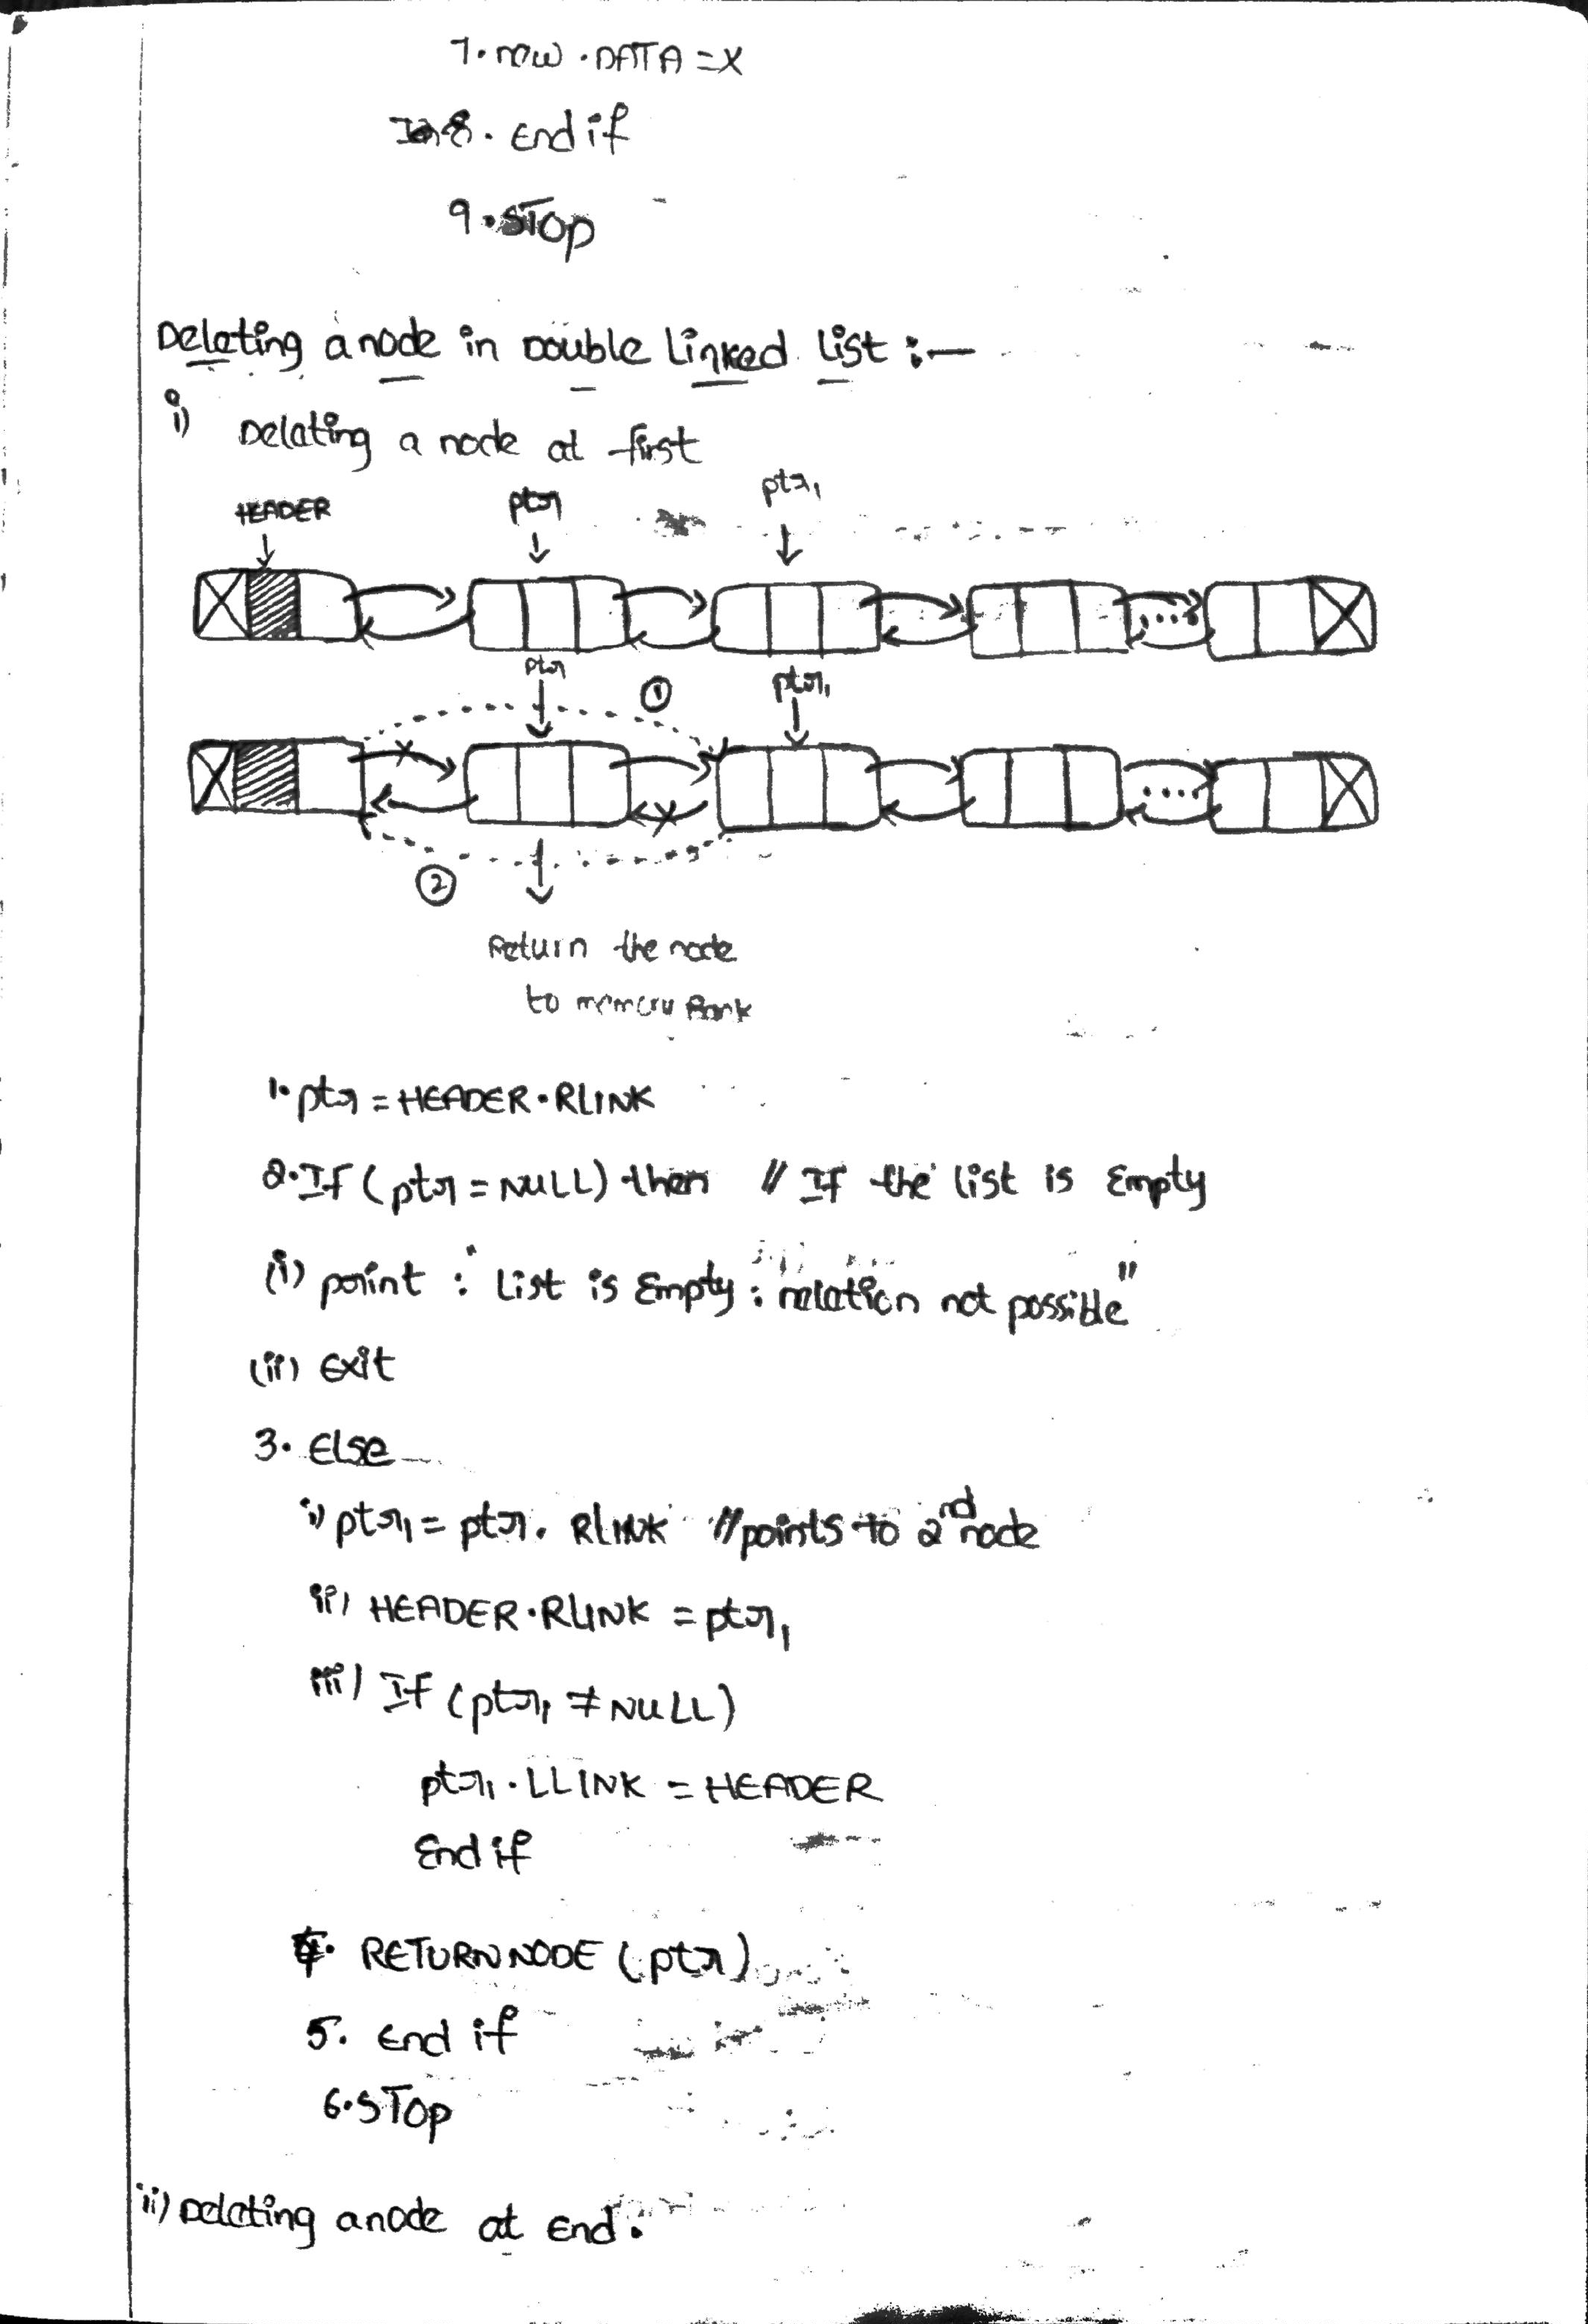 7. new . DATA = X
8. End if
9. STOP
Deleting a node in Double Linked List :-
i) Deleting a node at first
HEADER ptr ptr1
ptr ptr1
①
②
Return the node
to memory Bank
1. ptr = HEADER . RLINK
2. If ( ptr = NULL ) then // If the list is Empty
(i) print : " List is Empty : not possible "
(ii) Exit
3. Else
i) ptr1 = ptr . RLINK // points to 2nd node
ii) HEADER . RLINK = ptr1
iii) If ( ptr1 ≠ NULL )
ptr1 . LLINK = HEADER
End if
4. RETURN NODE ( ptr )
5. End if
6. STOP
ii) Deleting a node at End .